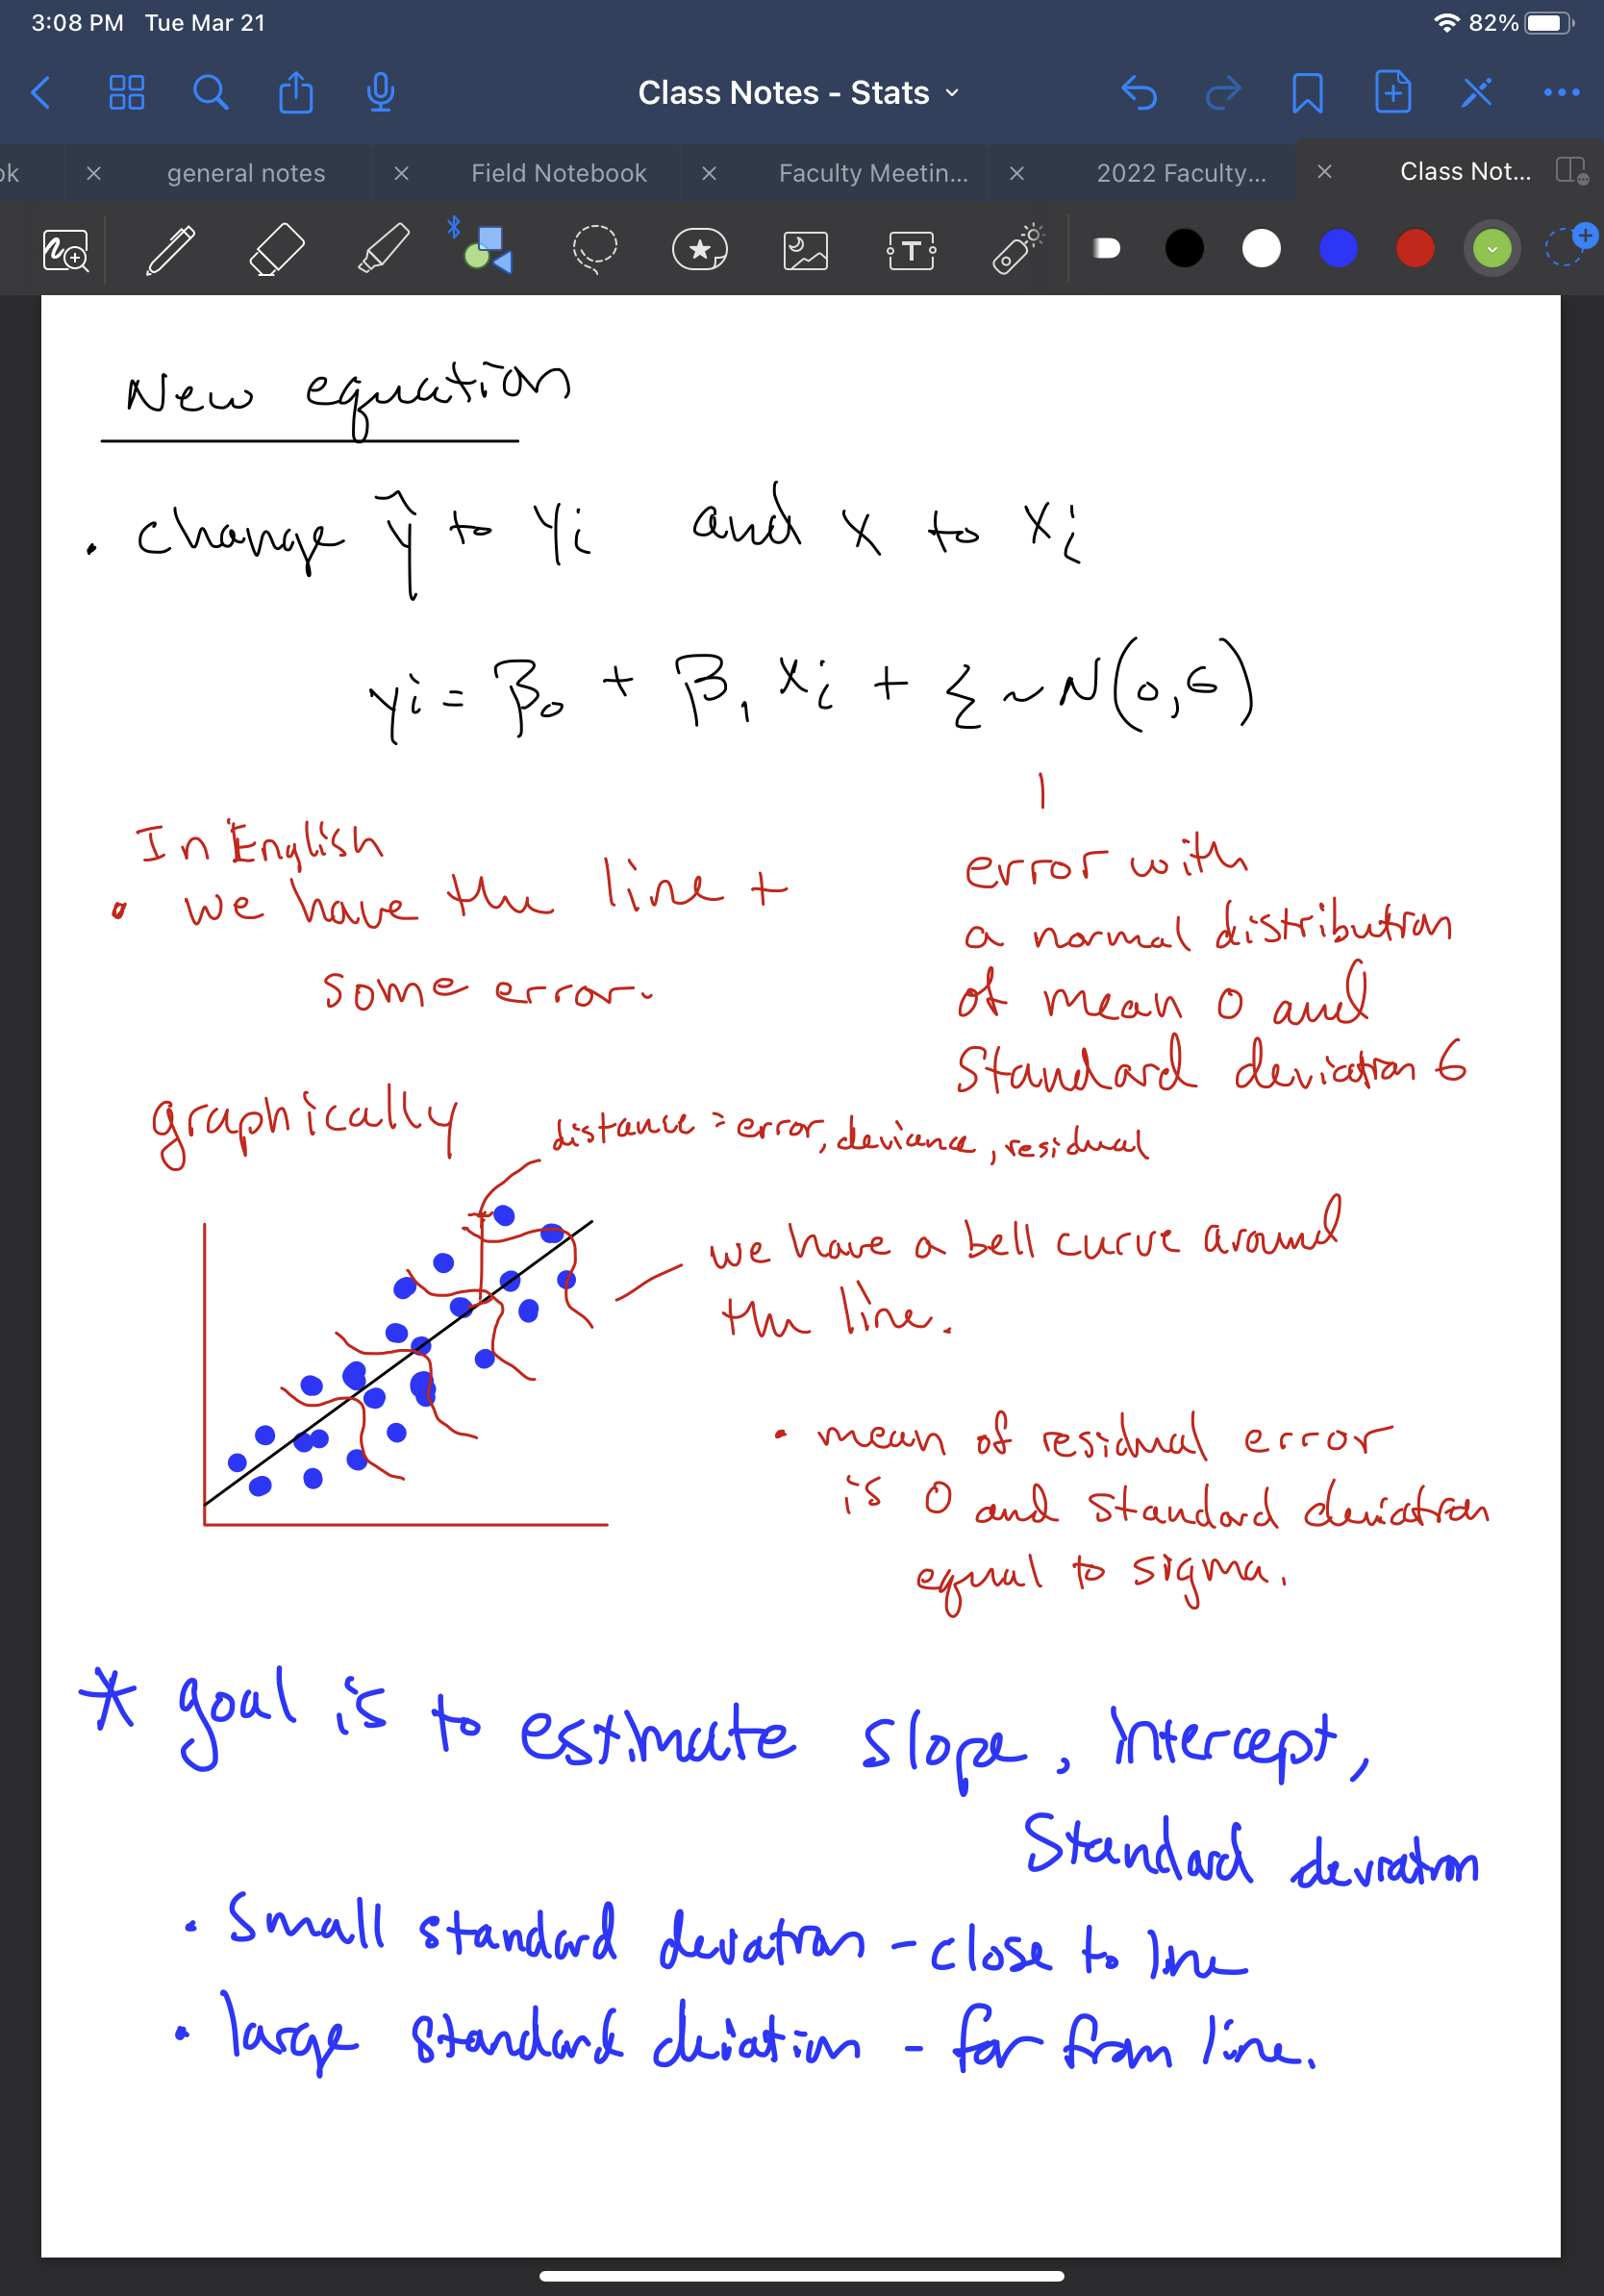 3:08 PM Tue Mar 21
82%
Class Notes - Stats
ok
general notes
Field Notebook
Faculty Meetin...
2022 Faculty...
Class Not...
T
New equation
• change ŷ to yi and x to xi
yi = β₀ + β₁ xi + ξ ~ N(0,σ)
In English
• we have the line +
some error.
error with
a normal distribution
of mean 0 and
Standard deviation σ
graphically
distance = error, deviance, residual
we have a bell curve around
the line.
• mean of residual error
is 0 and standard deviation
equal to sigma.
* goal is to estimate slope, intercept,
Standard deviation
• Small standard deviation - close to line
• large standard deviation - far from line.